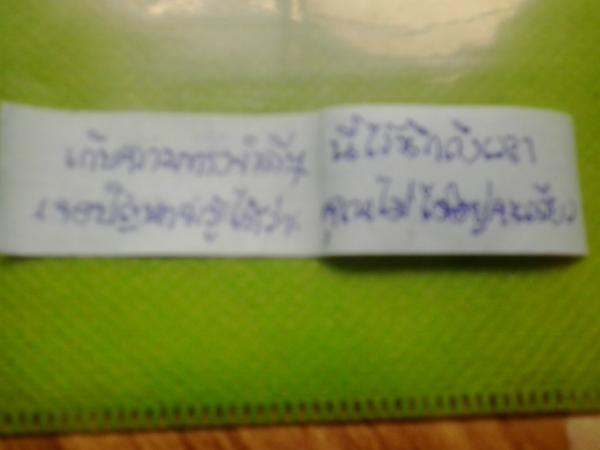 เก็บความทรงจำดีๆ นี้ไว้นึกถึงเวลา
เจอปัญหาจะรู้ได้ว่า คุณไม่ได้อยู่คนเดียว